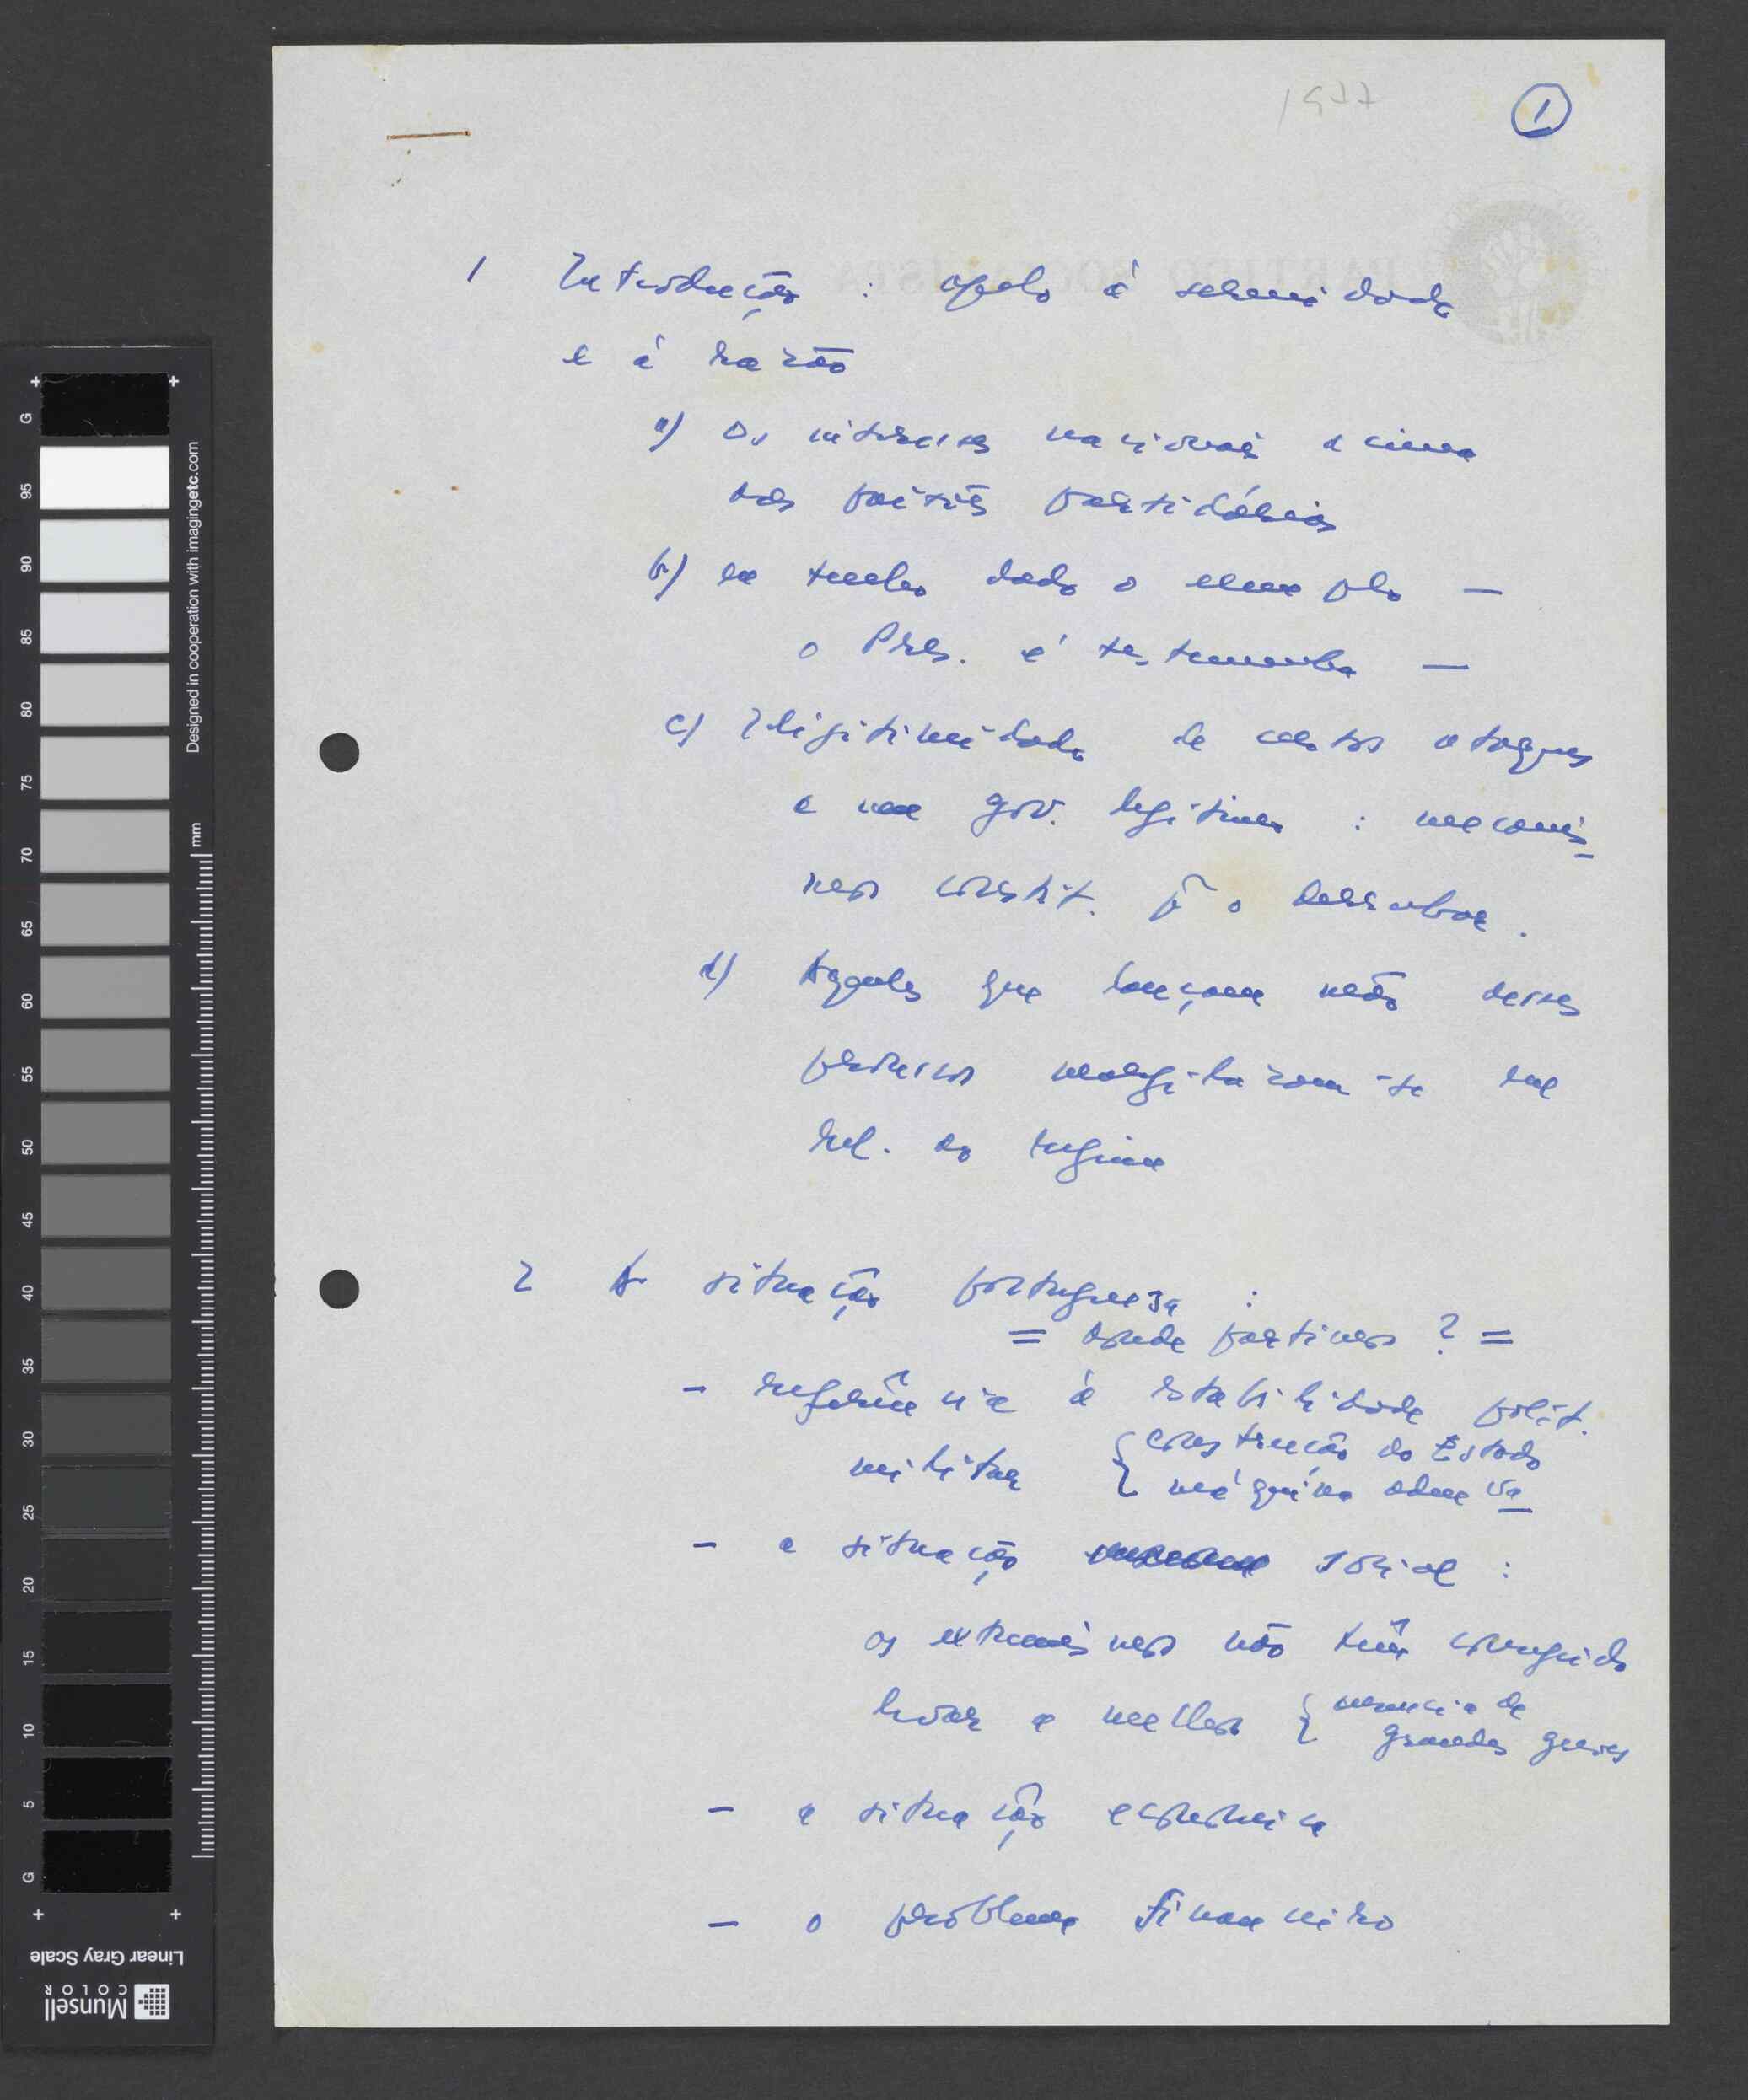 1977
1
1 Introdução : apelo à serenidade
e à razão
a) Os interesses nacionais acima
das partidários
b) eu tenho dado o exemplo —
o Pres. é testemunha —
c) Ilegitimidade de certos ataques
a um gov. legítimo : mecanis-
mos constit. p̃ o derrubar.
d) Aqueles que lançam mão desses
processos marginalizam-se em
rel. ao regime
2 A situação portuguesa :
= donde partimos ? =
- referência à estabilidade polít.
militar { construção do Estado
máquina admva
- a situação social :
os extremismos não têm conseguido
levar a melhor { ausência de
grandes greves
- a situação económica
- o problema financeiro
PARTIDO SOCIALISTA
+ +
G
95
90
85
80
75
70
65
60
55
50
45
40
35
30
25
20
15
10
5
G
+ +
Designed in cooperation with imagingetc.com
mm
Linear Gray Scale
Munsell
COLOR